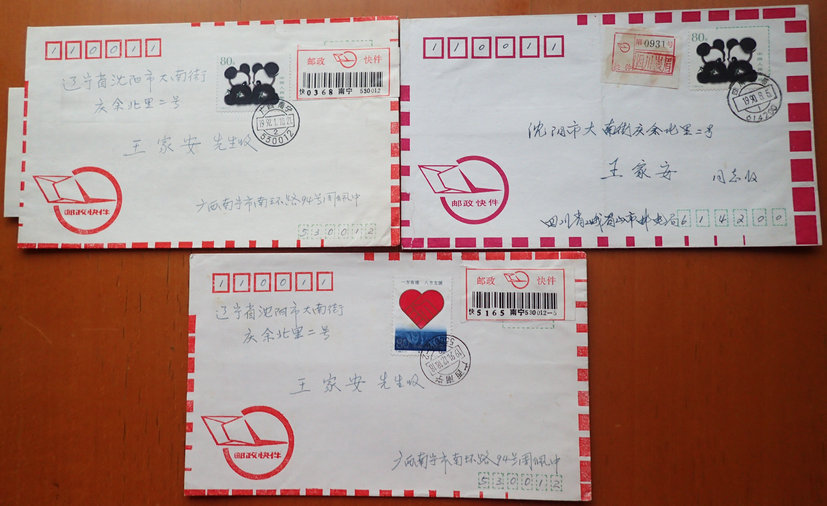 110011
80分
邮政 快件
快0368 南宁 530012
辽宁省沈阳市大南街
庆余北里二号
广西南宁
530012
王家安先生收
邮政快件
广西南宁市南环路94号周
530012
110011
第0931号
80分
1990.8.6
614200
沈阳市大南街庆余北里二号
王家安 同志收
邮政快件
四川省峨眉山市邮电局614200
110011
一方有难 八方支援
邮政 快件
快5165 南宁530012-5
辽宁省沈阳市大南街
庆余北里二号
广西南宁
王家安先生收
邮政快件
广西南宁市南环路94号周
530012